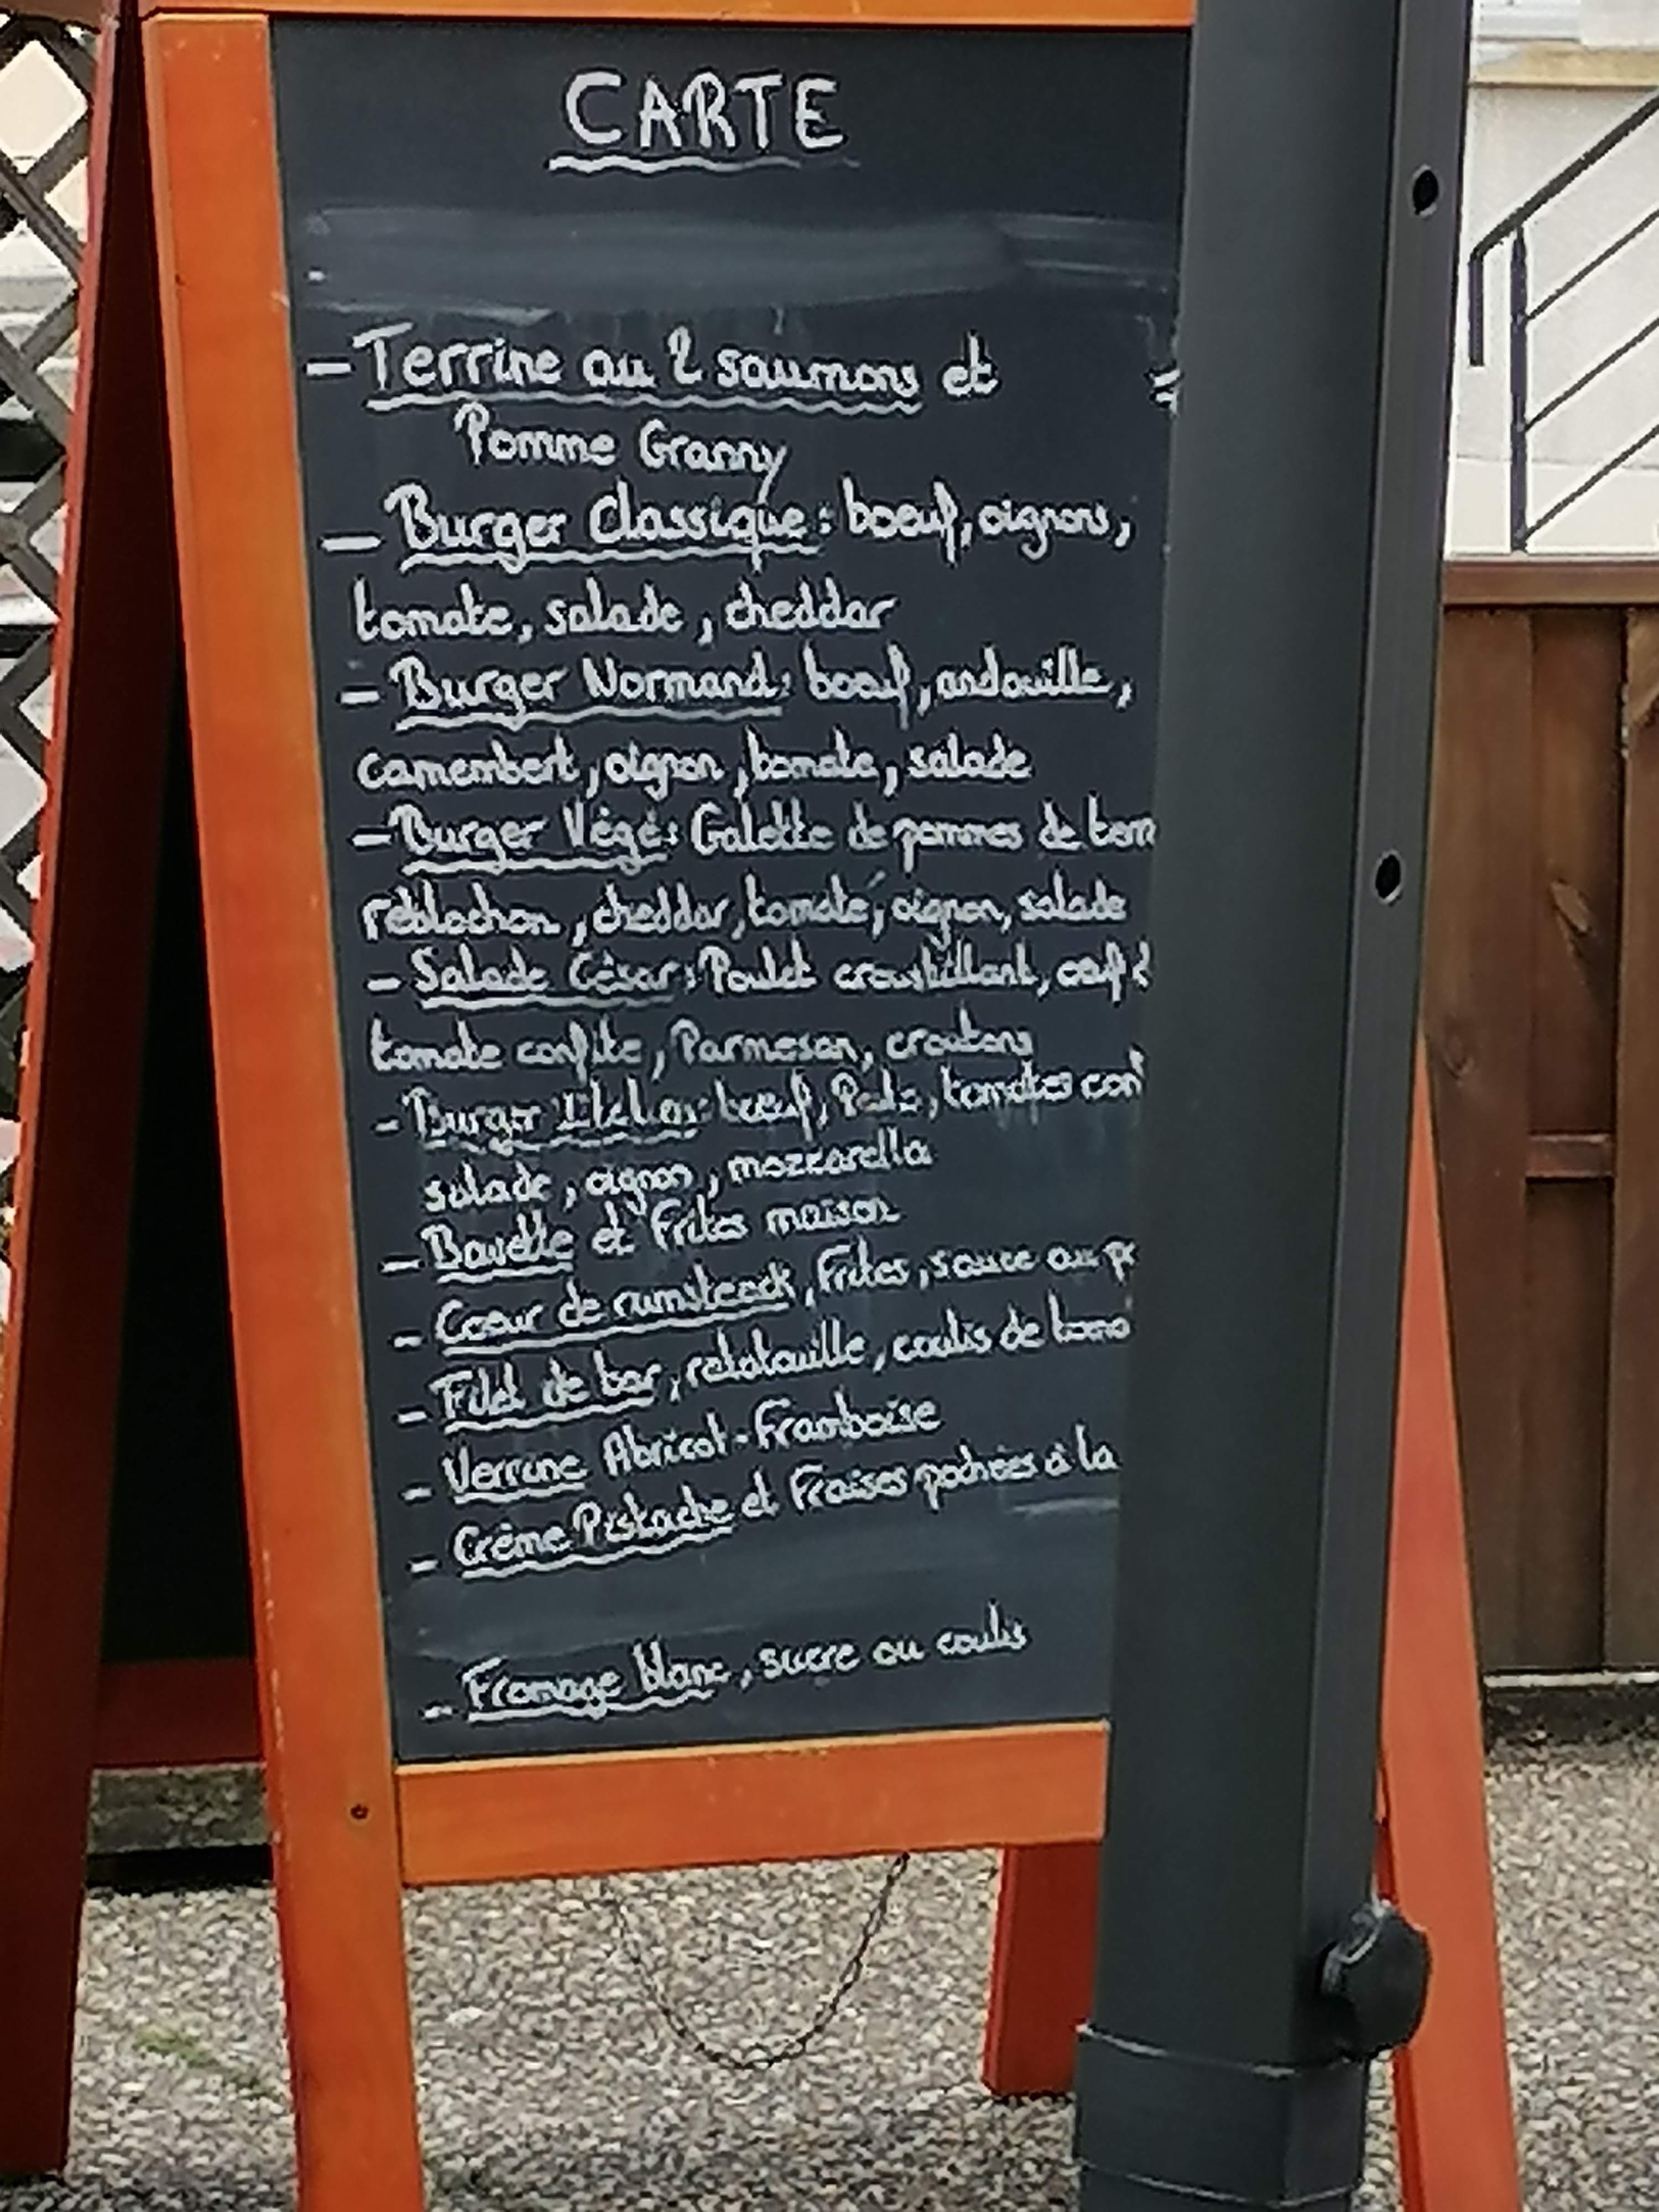 CARTE
- Terrine au 2 saumons et
Pomme Granny
- Burger Classique : boeuf, oignons,
tomate, salade, cheddar
- Burger Normand : boeuf, andouille,
camembert, oignon, tomate, salade
- Burger Végé : Galette de pommes de
réblochon, cheddar, tomate, oignon, salade
- Salade César : Poulet croustillant, oeuf
tomate confite, Parmesan, croutons
- Burger boeuf, tomates
salade, oignon, mozzarella
- Bavette et Frites maison
- Coeur de rumsteack, Frites, sauce au
- Filet de bar, ratatouille, coulis de
- Verrine Abricot-Framboise
- Crème Pistache et Fraises pochées à la
- Fromage blanc, sucre ou coulis